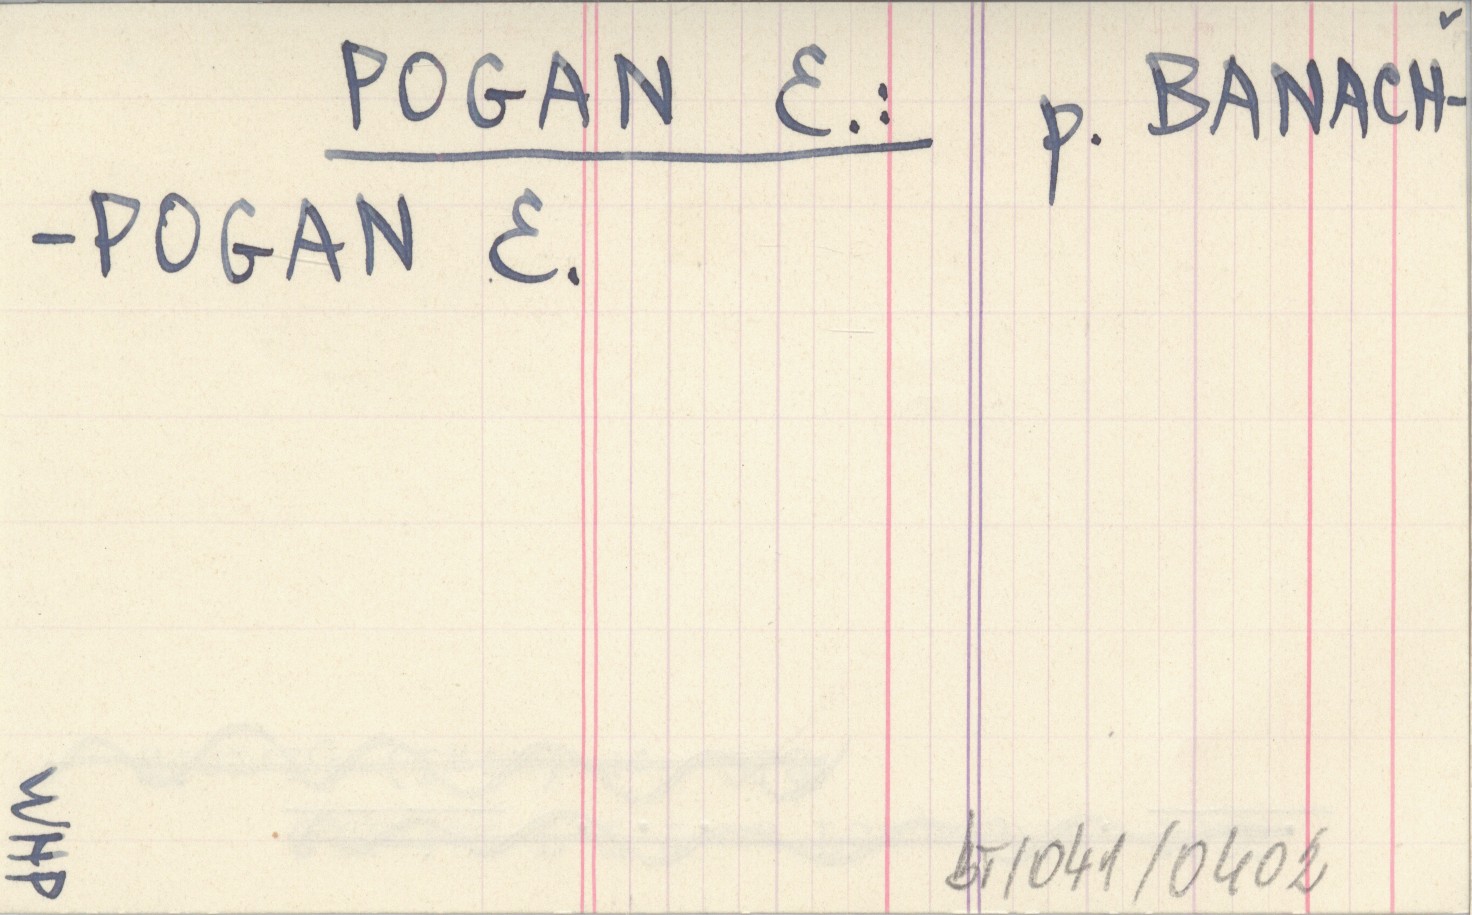 POGAN E.: p. BANACH-
-POGAN E.
WHP
/041/0402